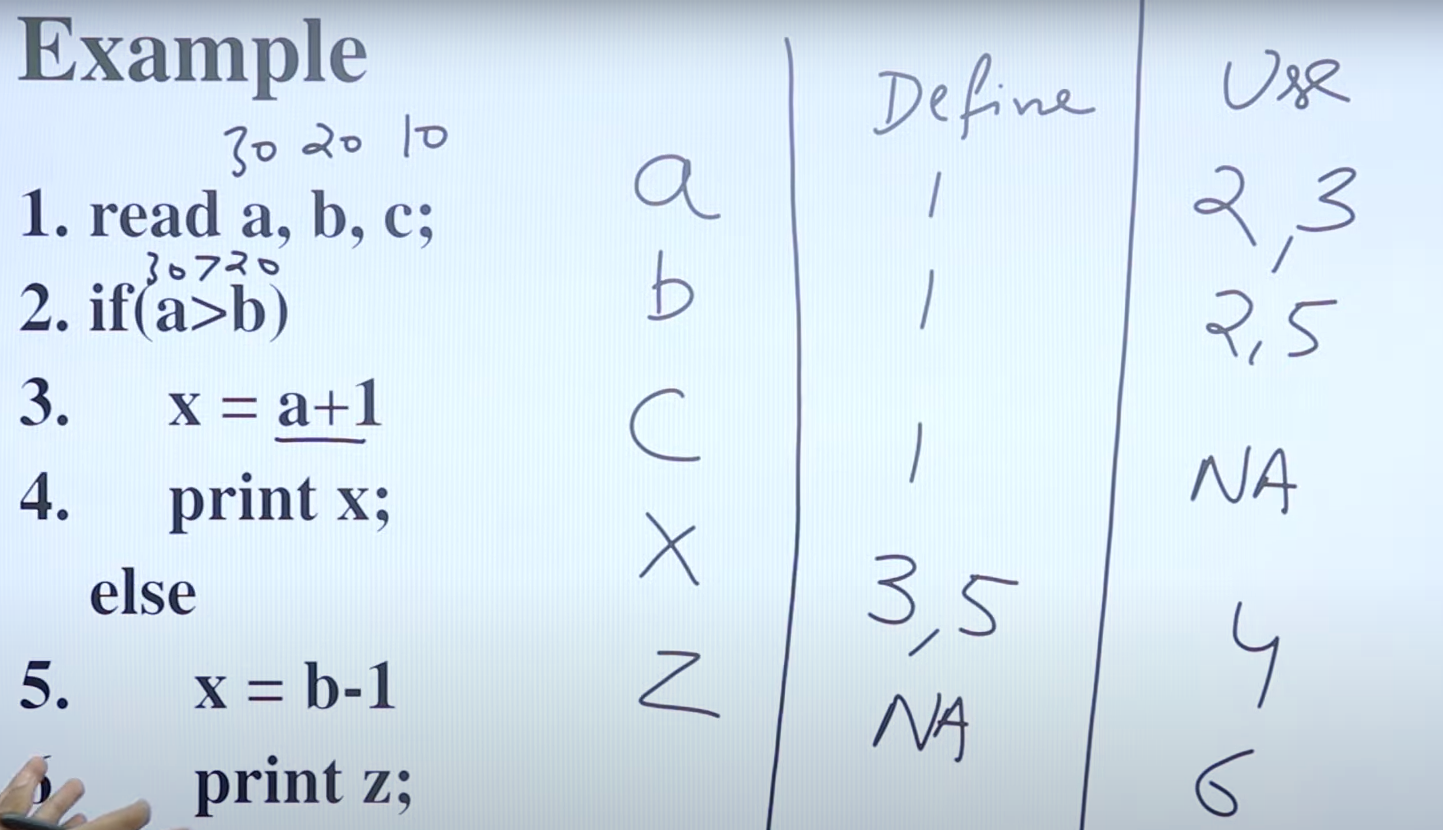 Example
30 20 10
1. read a, b, c;
30>20
2. if(a>b)
3. x = a+1
4. print x;
else
5. x = b-1
print z;
Define Use
a 1 2,3
b 1 2,5
C 1 NA
X 3,5 4
Z NA 6